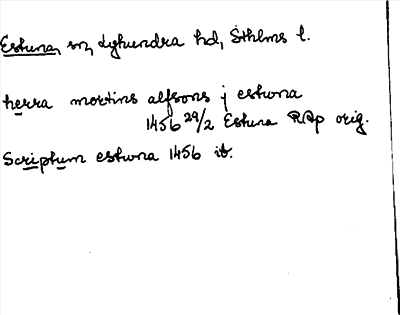 Estuna, sn, Lyhundra hd, Sthlms l.
herra mortins alfsons j estuna
1456 29/2 Estuna RAp orig.
Scriptum estuna 1456 ib.